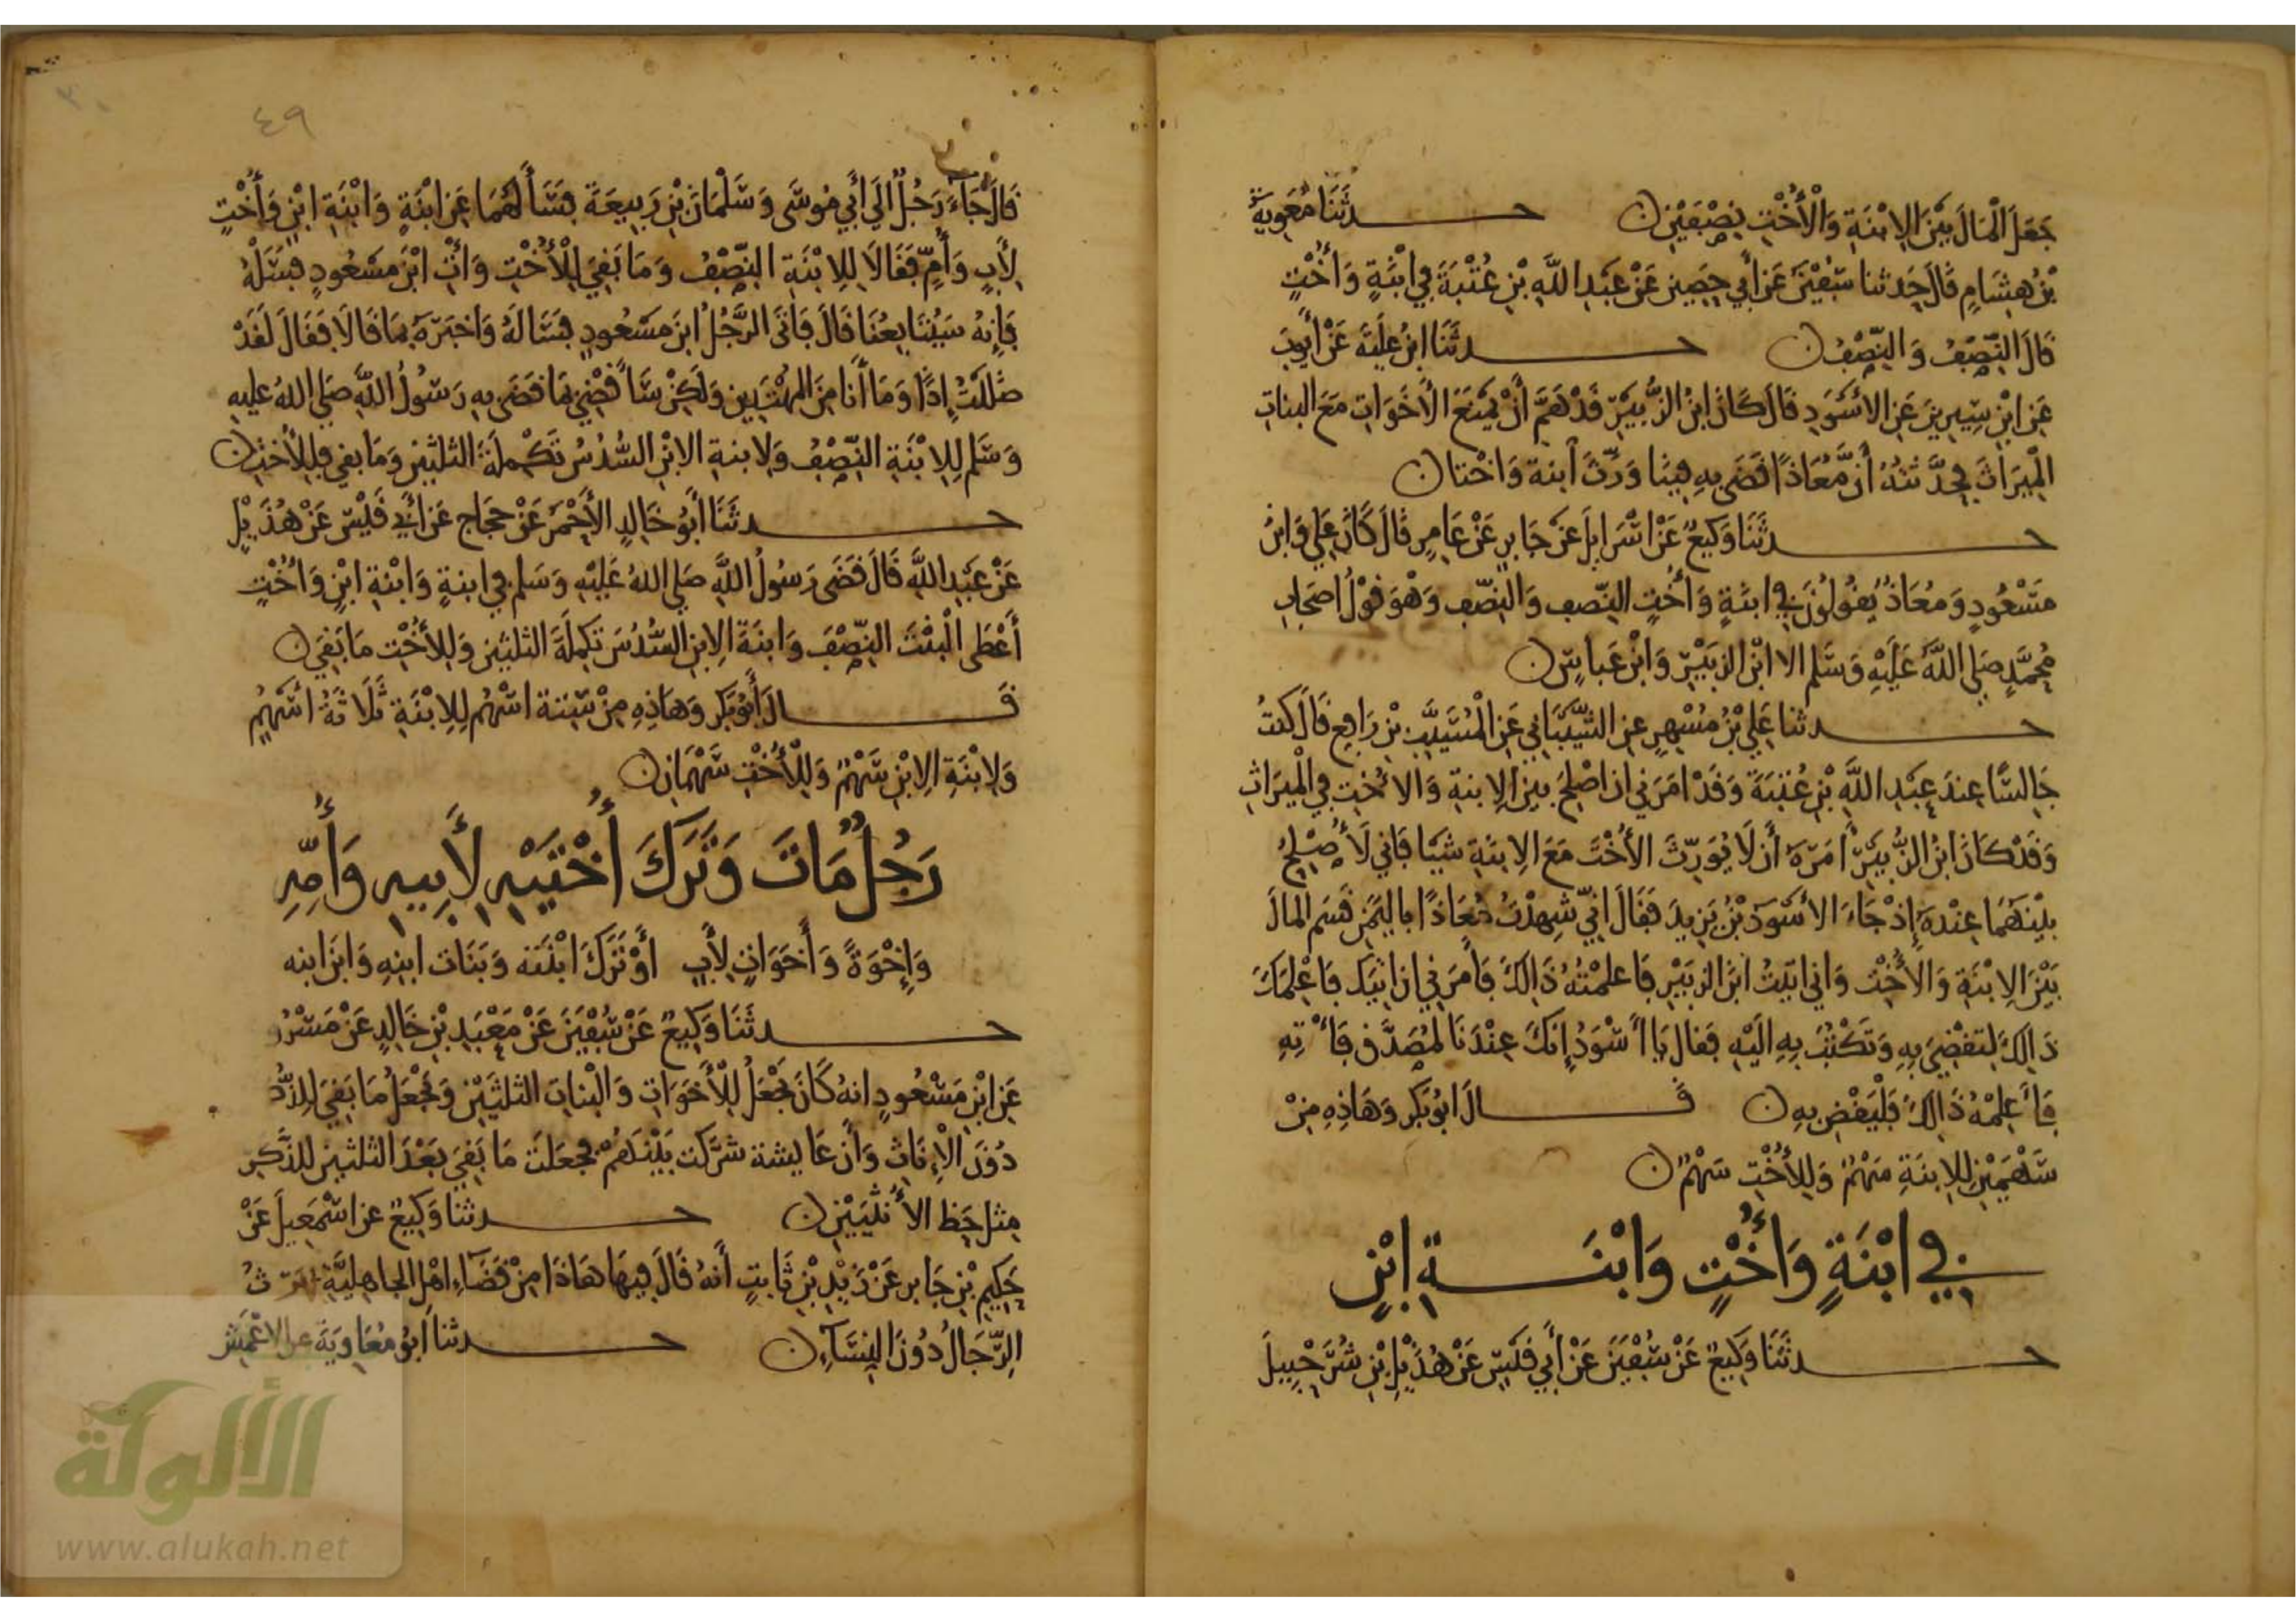 جَعَلَ الْمَالَ بَيْنَ الِابْنَةِ وَالْأُخْتِ نِصْفَيْنِ ن حـــدثَنَا مُعَوِيَةُ
بْنُ هِشَامٍ قَالَ حَدثنا سُفْيَنُ عَنْ أَبِي حَصِينٍ عَنْ عَبْدِ اللَّهِ بْنِ عُتْبَةَ فِي ابْنَةٍ وَأُخْتٍ
قَالَ النِّصْفُ وَالنِّصْفُ ن حـــدثَنَا ابْنُ عُلَيَّةَ عَنْ أَيُّوبَ
عَنِ ابْنِ سِيرِينَ عَنِ الأَسْوَدِ قَالَ كَانَ ابْنُ الزُّبَيْرِ قَدْ هَمَّ أَنْ يَمْنَعَ الأَخَوَاتِ مَعَ البناتِ
الْمِيرَاثَ فَحَدَّثتُهُ أَنَّ مُعَاذًا قَضَى بِهِ فِينَا وَرَّثَ ابنة وَاخْتا ن
حـــدثَنَا وَكِيعٌ عَنْ اسْرَايلَ عَنْ جَابِرٍ عَنْ عَامِرٍ قَالَ كَانَ عَلِي وَابنُ
مَسْعُودٍ وَمُعَاذٌ يَقُولُونَ فِي ابنَةٍ وَأُخْتٍ النّصف وَالنِّصْف وَهْوَ قَوْلُ اصحَابِ
مُحَمَّدٍ صَلى اللَّهُ عَلَيْهِ وَسَلم الا ابْنَ الزبَيْرِ وَابْنَ عَباسٍ ن
حـــدثنا عَلِي بْنُ مُسْهِرٍ عنِ الشَّيْبَانِي عَنِ الْمُسَيَّبِ بْنِ رَافِعٍ قَالَ كنتُ
جَالسًا عِندَ عَبْدِ اللَّهِ بْنِ عُتْبَةَ وَقَدْ امَرَنِي ان اصْلِحَ بَيْنَ الِابنةِ وَالاخْتِ فِي الْمِيرَاثِ
وَقَدْ كَانَ ابنُ الزُّبَيْرِ أَمَرَهُ أَن لَا يُوَرِّثَ الأُخْتَ مَعَ الِابنَةِ شَيْا فَاني لَأُصْلِحُ
بَيْنَهُمَا عِنْدَهُ إِذْ جَاءَ الاسْوَدُ بْنُ يَزِيدَ فَقَالَ انِّي شَهِدْتُ مُعَاذًا بِاليَمَنِ قَسَمَ الْمَالَ
بَيْنَ الِابْنَةِ وَالْأُخْتِ وَاني اتَيْتُ ابْنَ الزبَيْرِ فَاعلمْتُهُ ذَالِكَ فَأَمَرَنِي ان اتيَكَ فَاعْلِمَكَ
ذَالِكَ لِتقْضِيَ بِهِ وَتَكْتُبَ بِهِ الَيْهِ فَقالَ يَا أَسْوَدُ إِنكَ عِنْدَنَا لَمُصَدَّق فَأْتِهِ
فَأَعلِمْهُ ذَالِكَ فَلْيَقْضِ بِهِ ن قَـــالَ ابُو بَكْرٍ وَهَاذِهِ مِنْ
سَهْمَيْنِ لِلِابنَةِ سَهْمٌ وَلِلأُخْتِ سَهْمٌ ن
فِي ابْنَةٍ وَأُخْتٍ وَابْنَــةِ ابْنٍ
حـــدثَنَا وَكِيعٌ عَنْ سُفْيَنَ عَنْ أَبِي قَيْسٍ عَنْ هُذَيْلِ ابْنِ شُرَحْبِيلَ
٤٩
قَالَ جَاءَ رَجُلٌ الَي أَبِي مُوسَى وَسَلْمَانَ بْنِ رَبِيعَةَ فَسَأَلَهُمَا عَنِ ابْنَةٍ وَابْنَةِ ابْنٍ وَأُخْتٍ
لِأَبٍ وَأُمٍّ فَقَالَا لِلِابْنَةِ النِّصْفُ وَمَا بَقِيَ لِلْأُخْتِ وَأْتِ ابْنَ مَسْعُودٍ فَسَلْهُ
فَإِنهُ سَيُتَابِعُنَا قَالَ فَاتَى الرَّجُلُ ابنَ مَسْعُودٍ فَسَالَهُ وَاخبَرَهُ بمَا قَالَا فَقَالَ لَقَدْ
ضَلَلْتُ إِذًا وَمَا أَنَا مِنَ الْمُهْتَدِين وَلَكِنْ سَأَقْضِي بمَا قضَى بِهِ رَسُولُ اللَّهِ صَلي اللهُ عليهِ
وَسَلم لِلِابْنَةِ النِّصْفُ وَلِابنةِ الِابْنِ السُّدُسُ تَكْمِلَةَ الثلثَيْنِ وَمَا بقي فَلِلْأُخْتِ ن
حـــدثَنَا أَبُو خَالِدٍ الأَحْمَرُ عَنْ حَجَاجٍ عَنْ أَبِي قَيْسٍ عَنْ هُذَيْلٍ
عَنْ عَبْدِ اللَّهِ قَالَ قَضَى رَسُولُ اللَّهِ صَلى اللهُ عَلَيْهِ وَسَلم فِي ابنةٍ وَابْنةِ ابْنٍ وَأُخْتٍ
أَعْطَى الْبِنْتَ النِّصْفَ وَابنَةَ الِابنِ السُّدُسَ تَكمِلَةَ الثلثَينِ وَلِلأُخْتِ مَا بَقِيَ ن
قَـــالَ أَبُو بَكْرٍ وَهَاذِهِ مِنْ سِتة اسْهُم لِلِابْنَةِ ثَلَاثَةُ اسْهُمٍ
وَلِابْنَةِ الِابْنِ سَهْمٌ وَلِلْأُخْتِ سَهْمَانِ ن
رَجُلٌ مَاتَ وَتَرَكَ أُخْتَيْهِ لِأَبِيهِ وَأُمِّهِ
وَإِخْوَةً وَأَخَوَاتٍ لِأَبٍ أَوْ تَرَكَ ابْنَته وَبَنَات ابنِهِ وَابنَ ابنه
حـــدثَنَا وَكِيعٌ عَنْ سُفْيَنَ عَنْ مَعْبَدِ بْنِ خَالِدٍ عَنْ مَسْرُو
عَنِ ابْنِ مَسْعُودٍ انهُ كَانَ يَجْعَلُ لِلْأَخَوَاتِ وَالْبناتِ الثلثَيْنِ وَيَجْعَلُ مَا بَقِيَ لِلذُّ
دُونَ الْإِنَاثِ وَأَن عَايشة شرَّكت بَيْنَهُمْ فجعَلَتْ مَا بَقِيَ بَعْدَ الثلثينِ لِلذَّكَرِ
مِثل حَظ الأُنثَيَيْنِ ن حـــدثنا وَكِيعٌ عن اسْمَعِيلَ عَنْ
حَكِيمِ بْنِ جَابر عَنْ زَيْدِ بْنِ ثَابتٍ أَنهُ قَالَ فِيهَا هَاذَا مِنْ قَضَاءِ اهْلِ الجاهليَّةِ
الرِّجَالُ دُونَ النِّسَاءِ ن حـــدثنا ابُو مُعَاوِيَةَ عن الاعْمَشِ
الألوكة
www.alukah.net